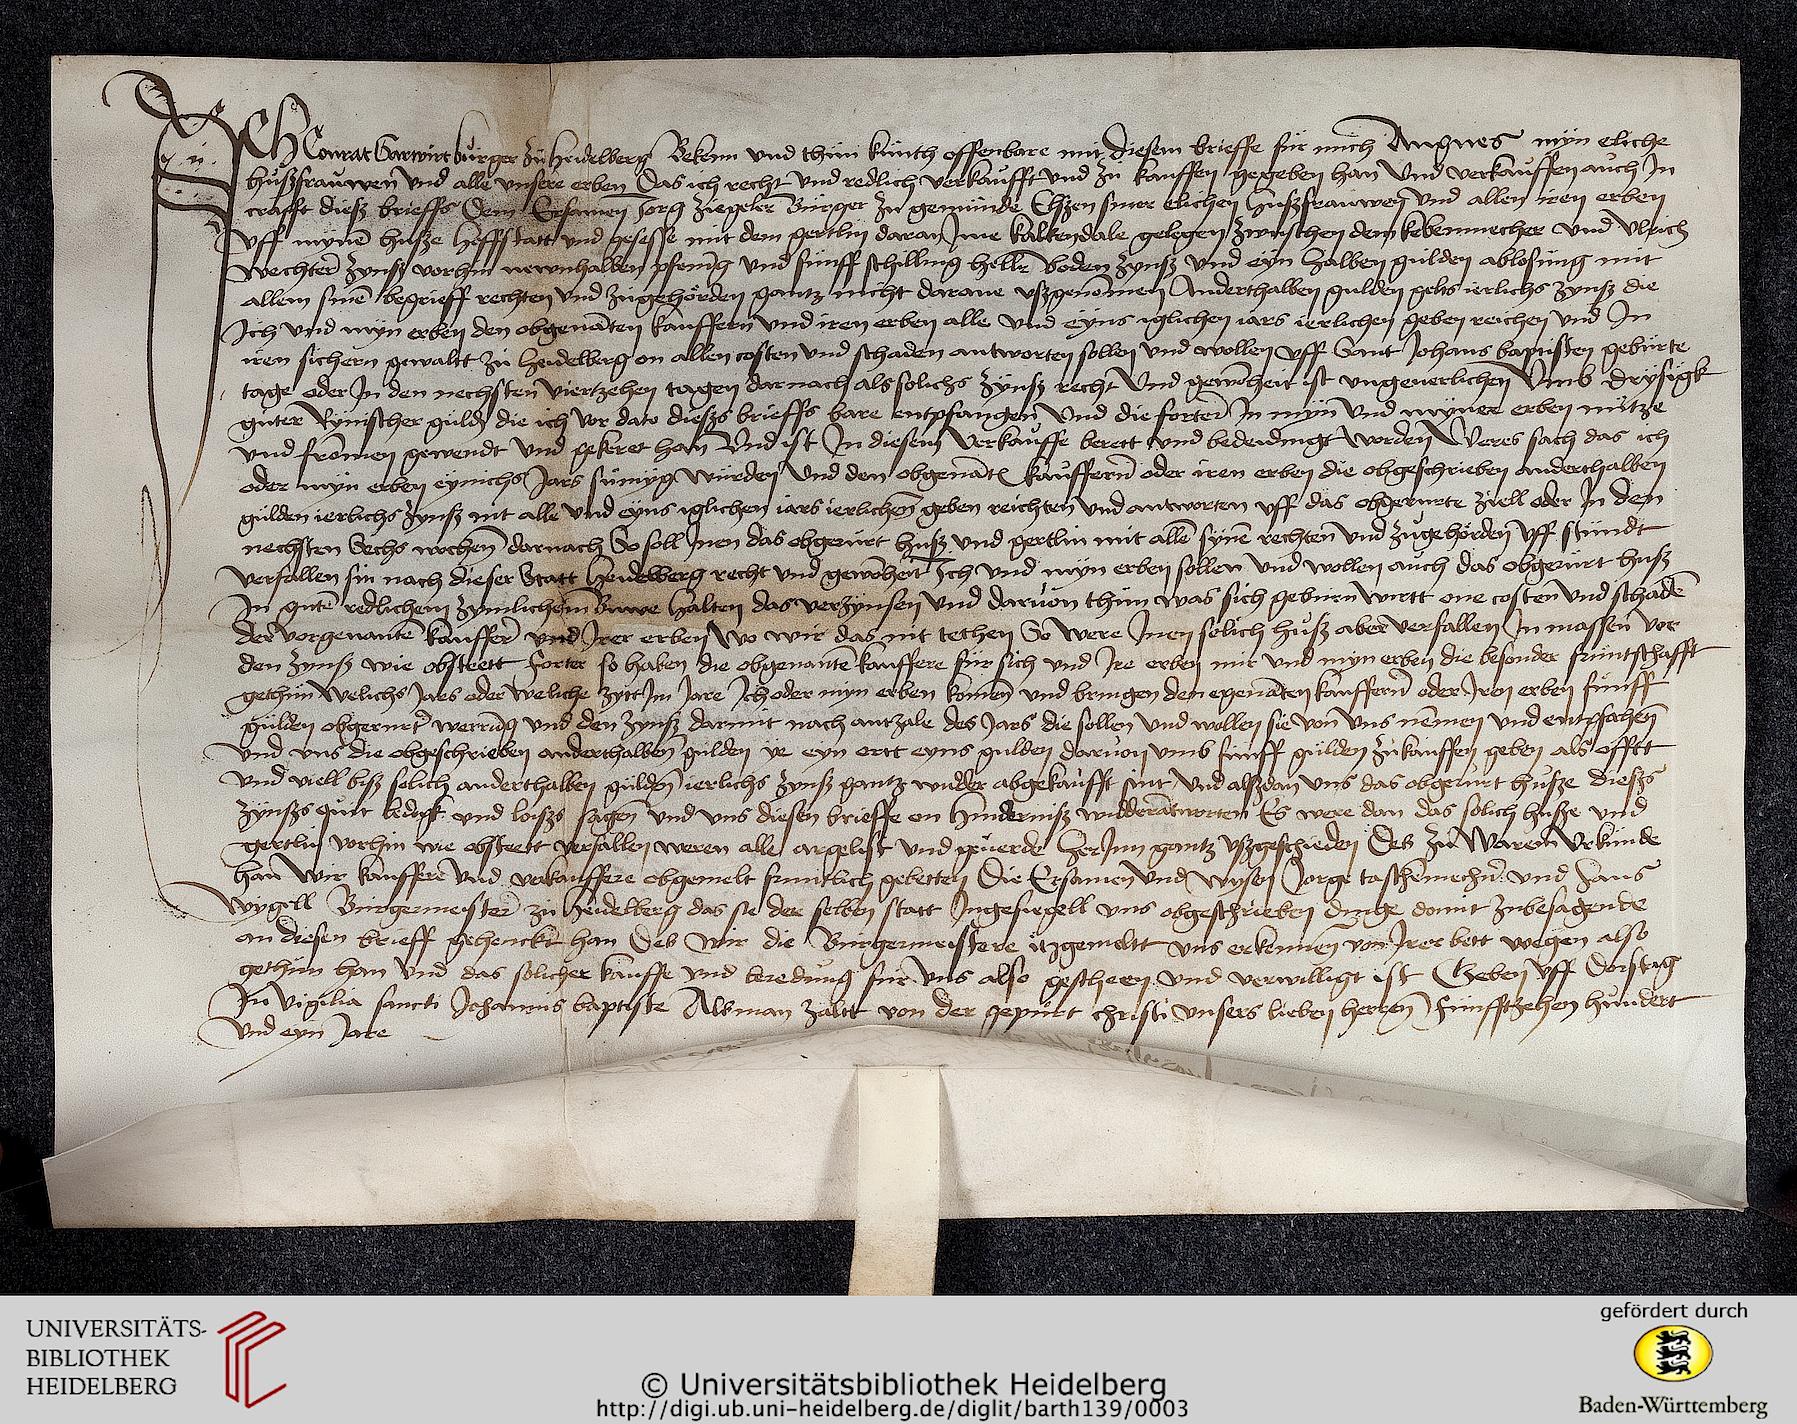 Ich Conrat Garwirt burger zu Heidelberg Bekenn und thun kunth offenbare mit diesem brieffe fur mich Angnes myn eliche
hußfrauwen Und alle unsere erben Das ich recht und redlich verkaufft und zu kauffen gegeben han Und verkauffen auch In
crafft dieß brieffs Dem Ersamen Jorg Ziegeler Burger zu gemunde Elßen siner elichen hußfrauwen Und allen iren erben
Uff mynē huße hoffstatt und gesesse mit dem gertlin daran Ime kaltendale gelegen zwuschen dem kebenmecher und Ulrich
Wechter zynß vorhin newnhalben pfenig und funff schilling heller boden zynß und eyn halben gulden ablosung mit
allem sinē begrieff rechten Und zugehorden gantz nicht darane ußgenomen Anderthalben gulden gelts ierlichs zynß die
Ich Und myn erben den obgenāten kauffern Und iren erben alle Und eyns iglichen iars ierlichen geben reichen und In
iren sichern gewaltt zu Heidelberg on allen costen Und schaden antworten sollen Und wollen Uff Sant Johans baptisten geburte
tage oder In den nechsten viertzehen tagen darnach als solichs zynß recht Und gewoheit ist ungeuerlichen Umb drysigk
guter Rynischer guld die ich vor dato dießs brieffs bare entpfangen Und die forter In myn Und myner erben nutze
Und fromen gewendt Und gekeret han Und ist In diesem verkauffe berett Und bedeidingt worden Weres sach das ich
oder myn erben eynichs Jars sumyg wurden Und den obgenāt kauffern oder iren erben die obgeschrieben anderthalben
gulden ierlichs zynß nit alle Und eyns iglichen iars ierlichen geben reichten Und antworten uff das obgerurte ziell oder In den
nechsten Sechs wochen darnach So soll Inen das obgerurt huß Und gertlin mit allē synē rechten Und zugehorden Uff stundt
verfallen sin nach dieser Statt Heidelberg recht und gewoheit Ich Und myn erben sollen Und wollen auch das obgerurt huß
In gutē redlichem zymlichem Buwe halten das verzynsen Und daruon thun was sich geburn wirtt one costen Und schadē
der vorgenantē kauffer und Irer erben Wo wir das nit tethen So were Inen solich huß aber verfallen In massen vor
den zynß wie obsteett Forter so haben die obgenantē kauffere fur sich Und Ire erben mir Und myn erben die besonder fruntschafft
gethun Welichs Jars oder weliche zytt Im Jare Ich oder myn erben komen Und bringen den egenāten kauffern oder Iren erben funff
gulden obgerurt werung Und den zynß darmit nach antzale des Jars die sollen Und wollen sie von Uns nemen Und entpfahen
Und uns die obgeschrieben anderthalben gulden ye eyn ertt eyns gulden daruon Umb funff gulden zu kauffen geben als offt
Und viell biß solich anderthalben gulden ierlichs zynß gantz widder abgekaufft sint Und alßdan Uns das obgerurt huße dießs
zynßs quit ledigk und loißs sagen Und uns diesen brieffe on hinderniß widderātworten Es were dan das solich huße und
gertlin vorhin wie obsteett verfallen weren alle argelist Und geuerde herInn gantz ußgeschieden Des zu Warem Urkunde
han Wir kauffere Und verkauffere obgemelt fruntlich gebetten Die Ersamen Und Wysen Jorge taschēmecher und Hans
Wygell Burgermeister zu Heidelberg das sie der selben statt Ingesiegell uns obgeschrieben dinge domit zubesagende
an diesen brieff gehenckt han Des Wir die Burgermeistere itzgemeltt uns erkennen von Irer bett wegen also
gethun han Und das solicher kauffe Und beredung fur Uns also gescheen Und verwilligt ist Geben Uff Dorstag
In Vigilia sancti Johannis baptiste Als man zaltt von der gepurt christi Unsers lieben herren Funfftzehen hundert
Und eyn Jare
UNIVERSITÄTS-
BIBLIOTHEK
HEIDELBERG
© Universitätsbibliothek Heidelberg
http://digi.ub.uni-heidelberg.de/diglit/barth139/0003
gefördert durch
Baden-Württemberg